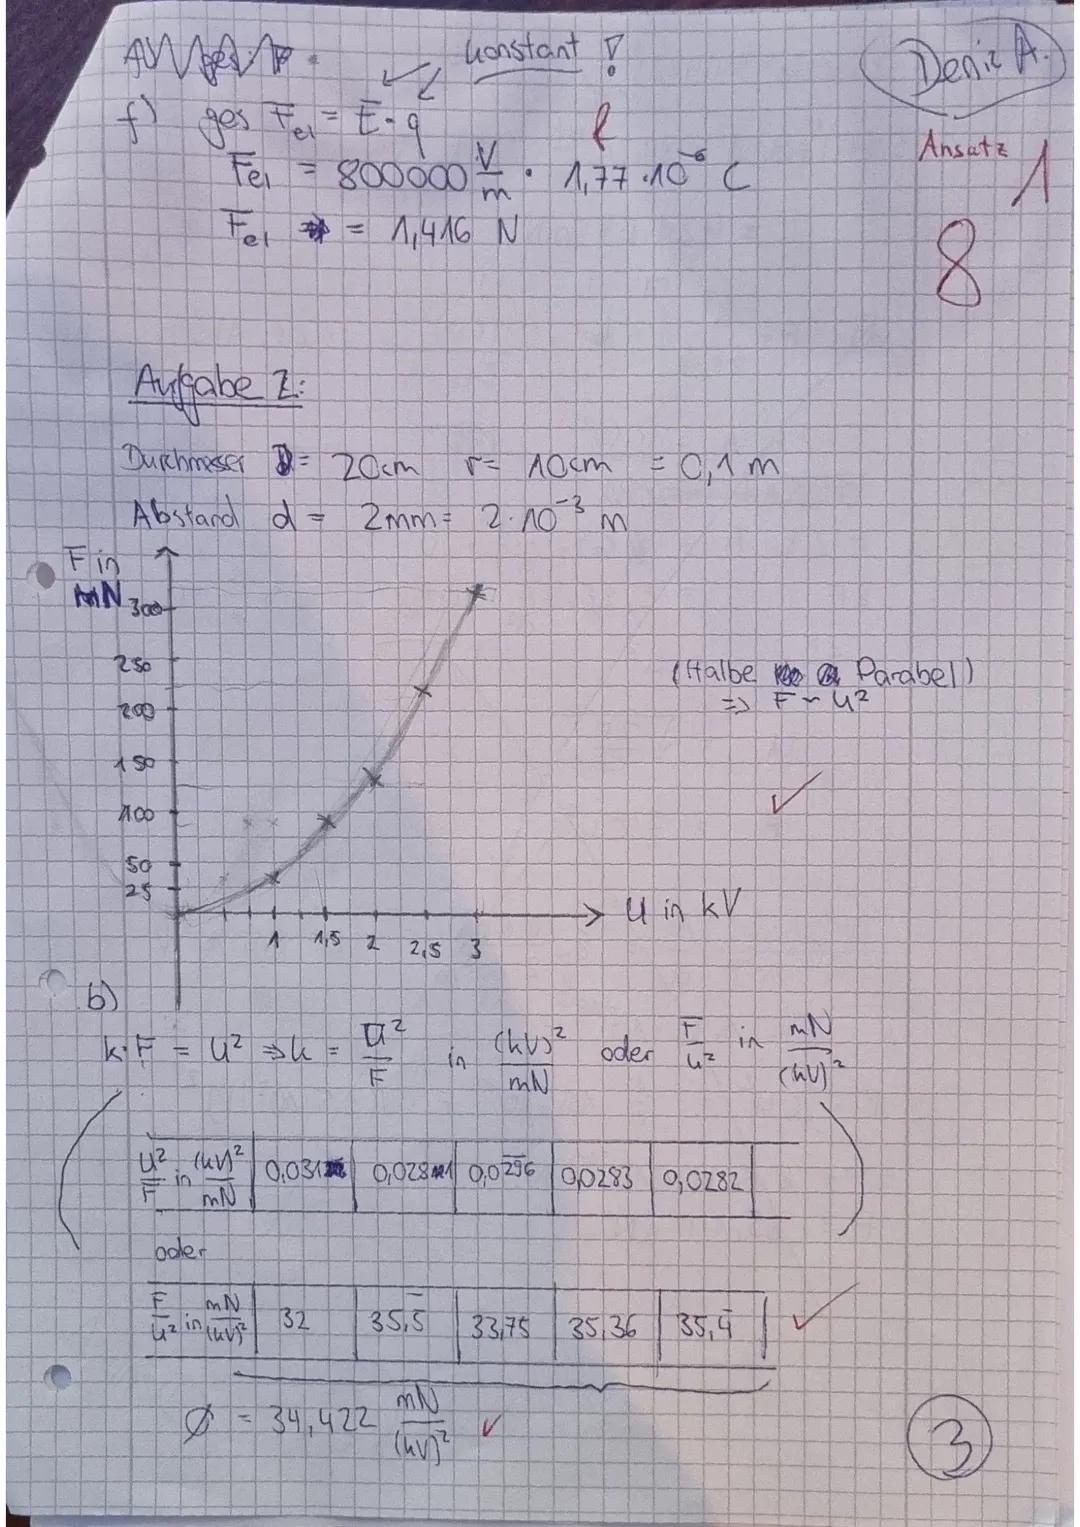 konstant !
Deniz A.
f) ges F_el = E · q
f
Ansatz 1
F_el = 800000 V/m · 1,77 · 10^-6 C
F_el = 1,416 N
8
Aufgabe 2:
Durchmesser D = 20cm r = 10cm = 0,1 m
Abstand d = 2mm = 2 · 10^-3 m
F in
mN
300
250
200
150
100
50
25
(Halbe Parabel)
=> F ~ U²
✓
1 1,5 2 2,5 3
U in kV
b)
k·F = U² => k = U²/F in (kV)²/mN oder F/U² in mN/(kV)²
U²/F in (kV)²/mN 0,031 0,028 0,0296 0,0283 0,0282
oder
F/U² in mN/(kV)² 32 35,5̅ 33,75 35,36 35,4̅ ✓
Ø = 34,422 mN/(kV)² ✓
3